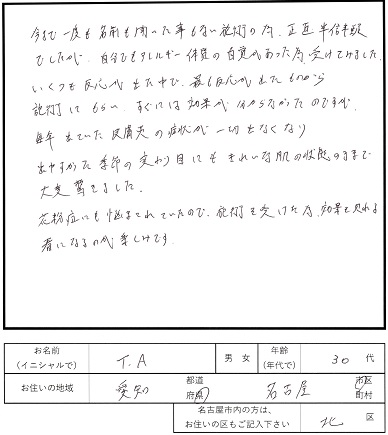 今まで一度も名前も聞いた事もない施術の為、正直半信半疑
でしたが、自分でもアレルギー体質の自覚があった為、受けてみました。
いくつも反応が出た中で、最も反応が出たものから
施術してもらい、すぐには効果が分からなかったのですが、
毎年出ていた皮膚炎の症状が一切出なくなり
出やすかった季節の変わり目にもきれいな肌の状態のままで
大変驚きました。
花粉症にも悩まされていたので、施術を受けた為、効果を見れる
春になるのが楽しみです。
お名前
(イニシャルで)
T.A
男 女
年齢
(年代で)
30 代
お住いの地域
愛知
都道
府県
名古屋
市区
町村
名古屋市内の方は、
お住いの区もご記入下さい
北 区